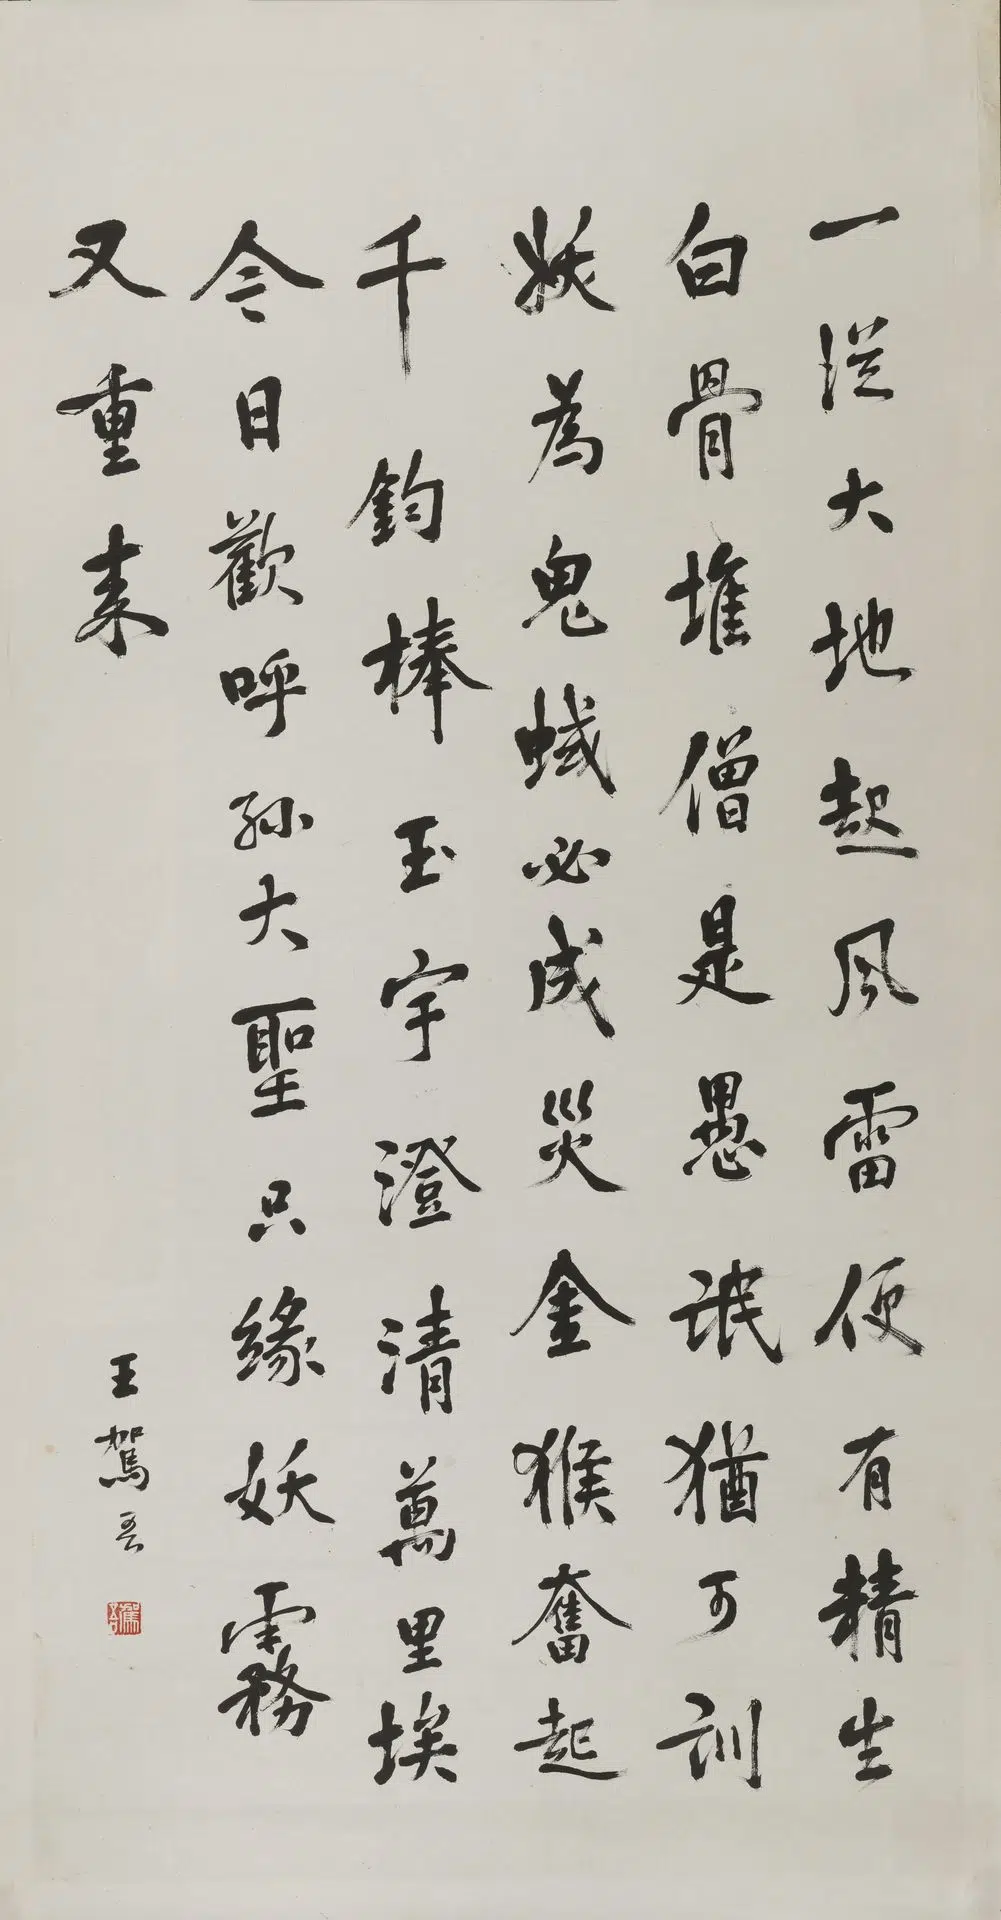 一從大地起風雷便有精生
白骨堆僧是愚氓猶可訓
妖為鬼蜮必成災金猴奮起
千鈞棒玉宇澄清萬里埃
今日歡呼孫大聖只緣妖霧
又重來
王駕吾
駕吾